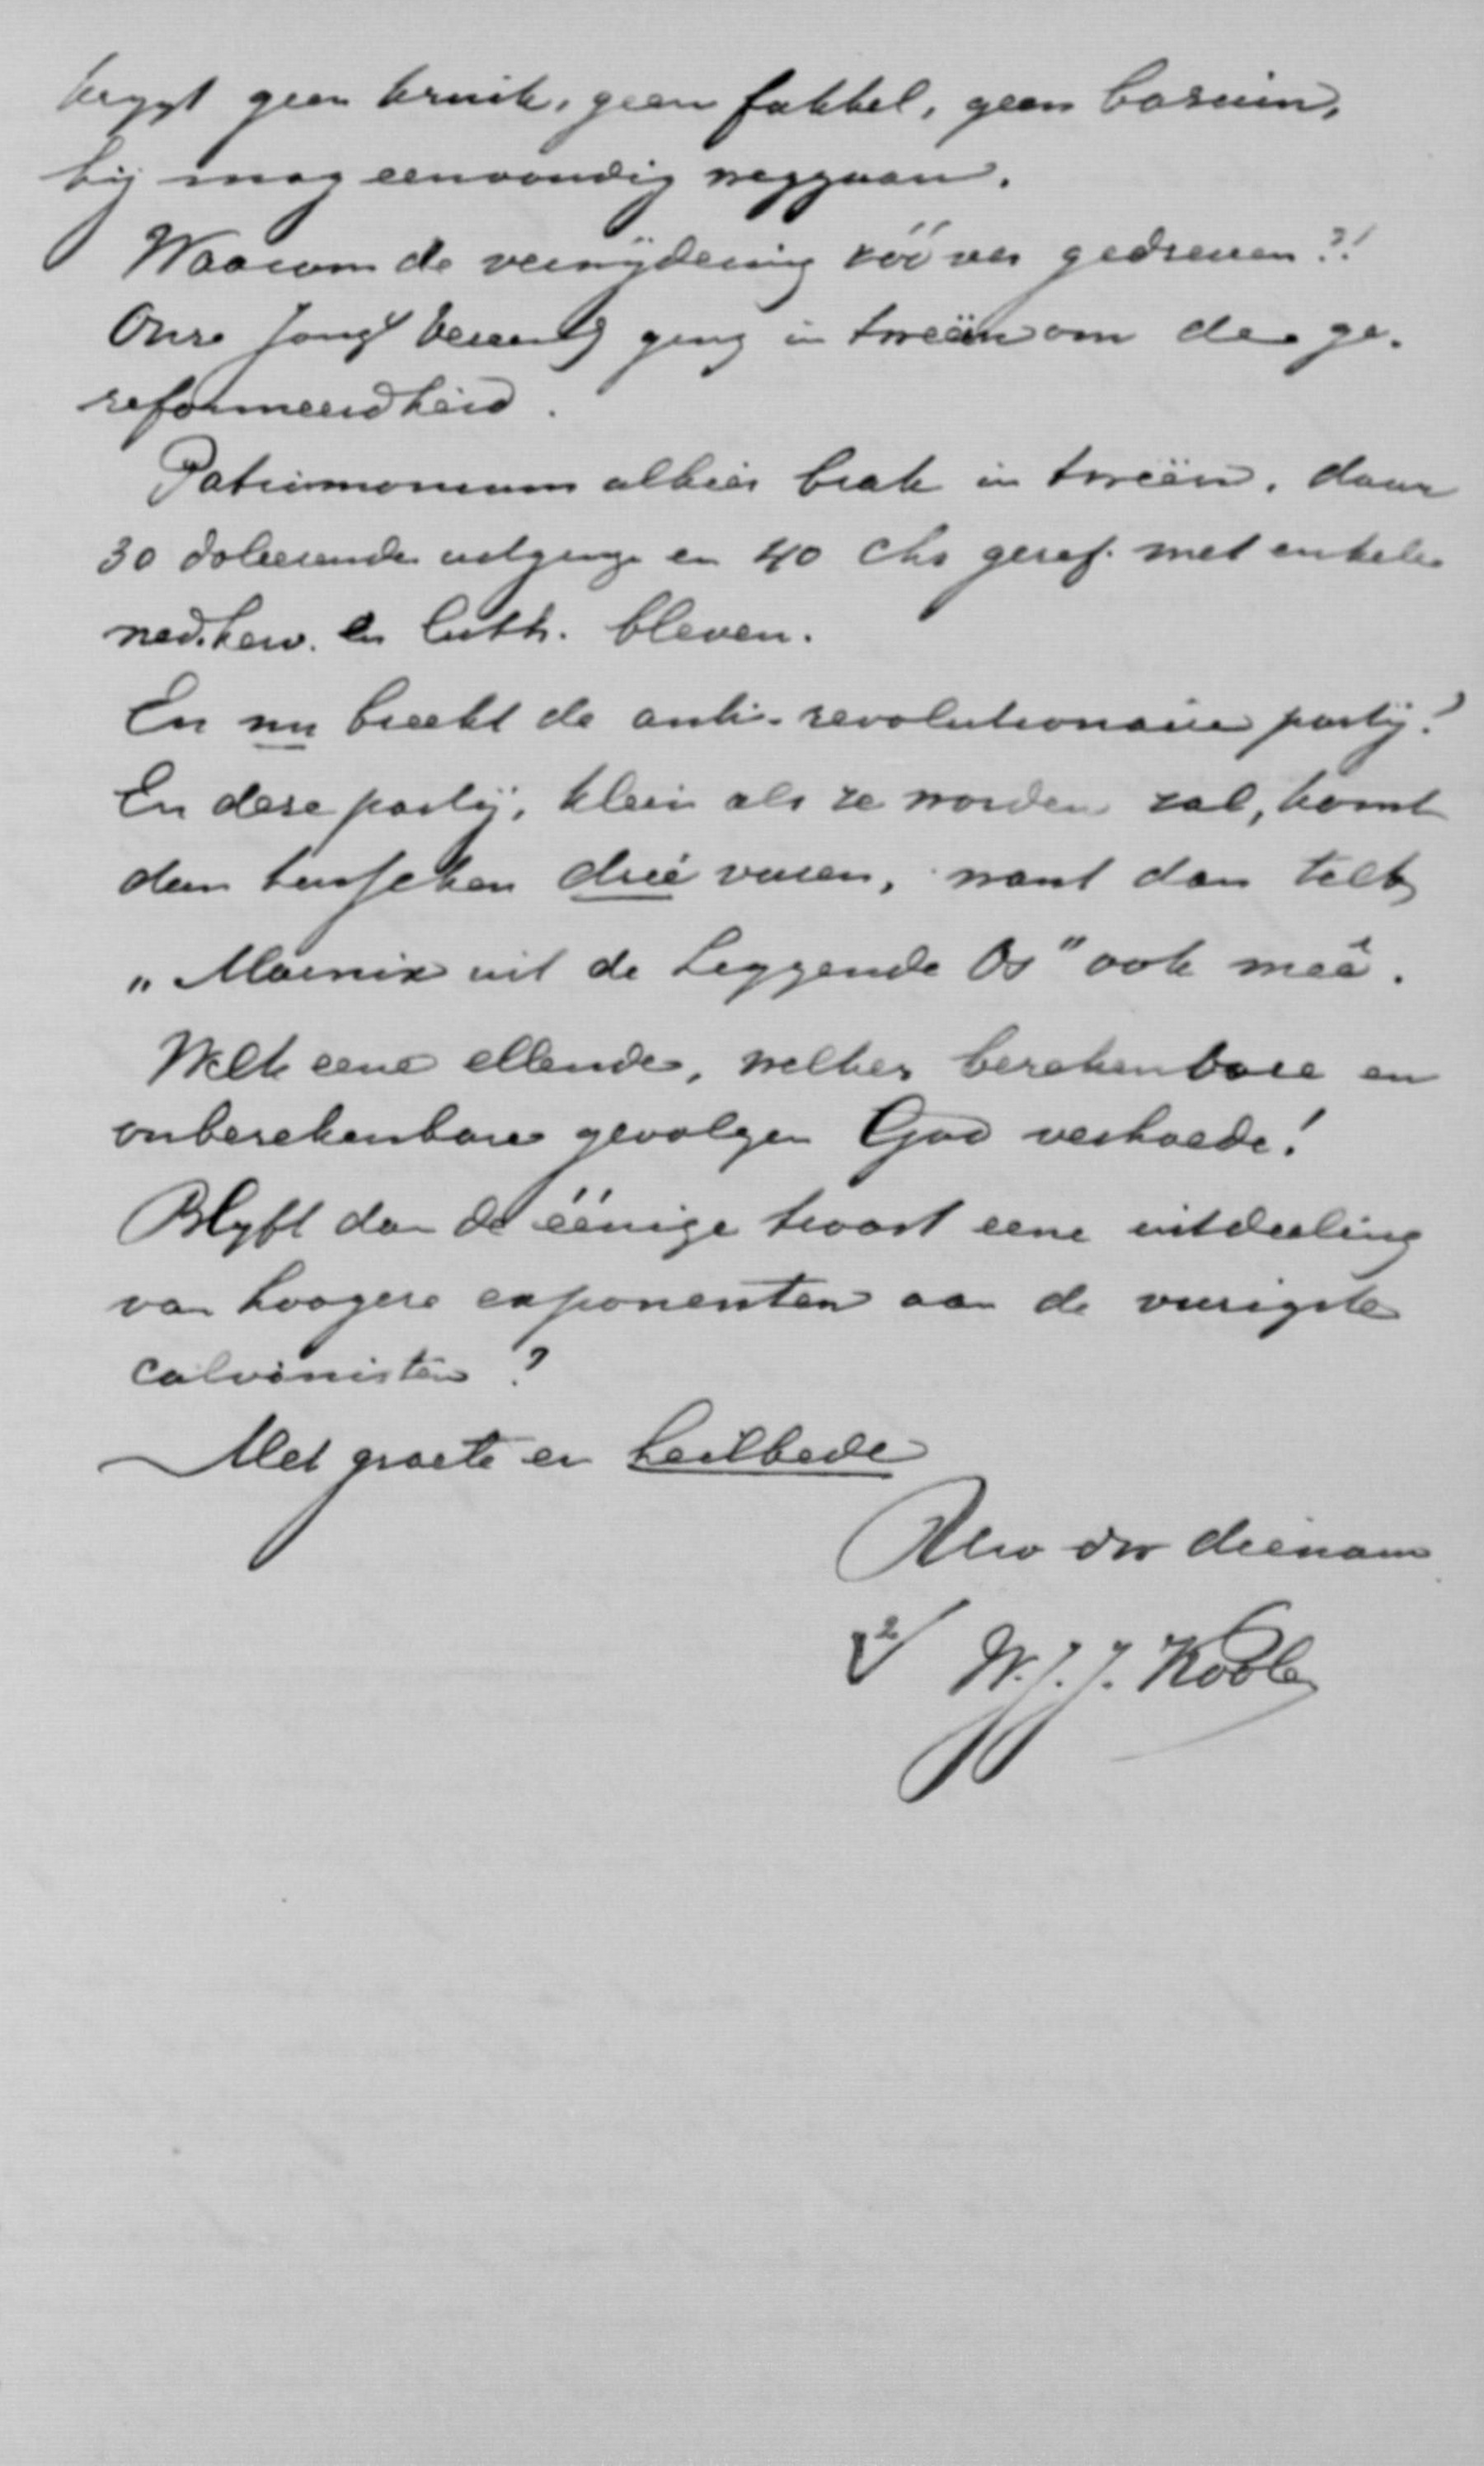 krygt geen kruik, geen fakkel, geen basuin,
hij mag eenvoudig weggaan.
Waarom de verwijdering zóó ver gedreven?!
Onze Jongl Vereenig ging in tweeën om de ge-
reformeerdheid.
Patrimonium alhier brak in tweeën, daar
30 doleerende uitging en 40 chr geref. met enkele
ned. herv. en luth. bleven.
En nu breekt de anti-revolutionaire partij!
En deze partij, klein als ze worden zal, komt
dan tusschen drie vuren, want dan telt
"Marnix uit de Leggende Os" ook meê.
Welk eene ellende, welker berekenbare en
onberekenbare gevolgen God verhoede!
Blyft dan de éénige troost eene uitdeeling
van hoogere exponenten aan de vurigste
calvinisten?
Met groete en heilbede
UEw dw dienaar
W. J. J. Koole